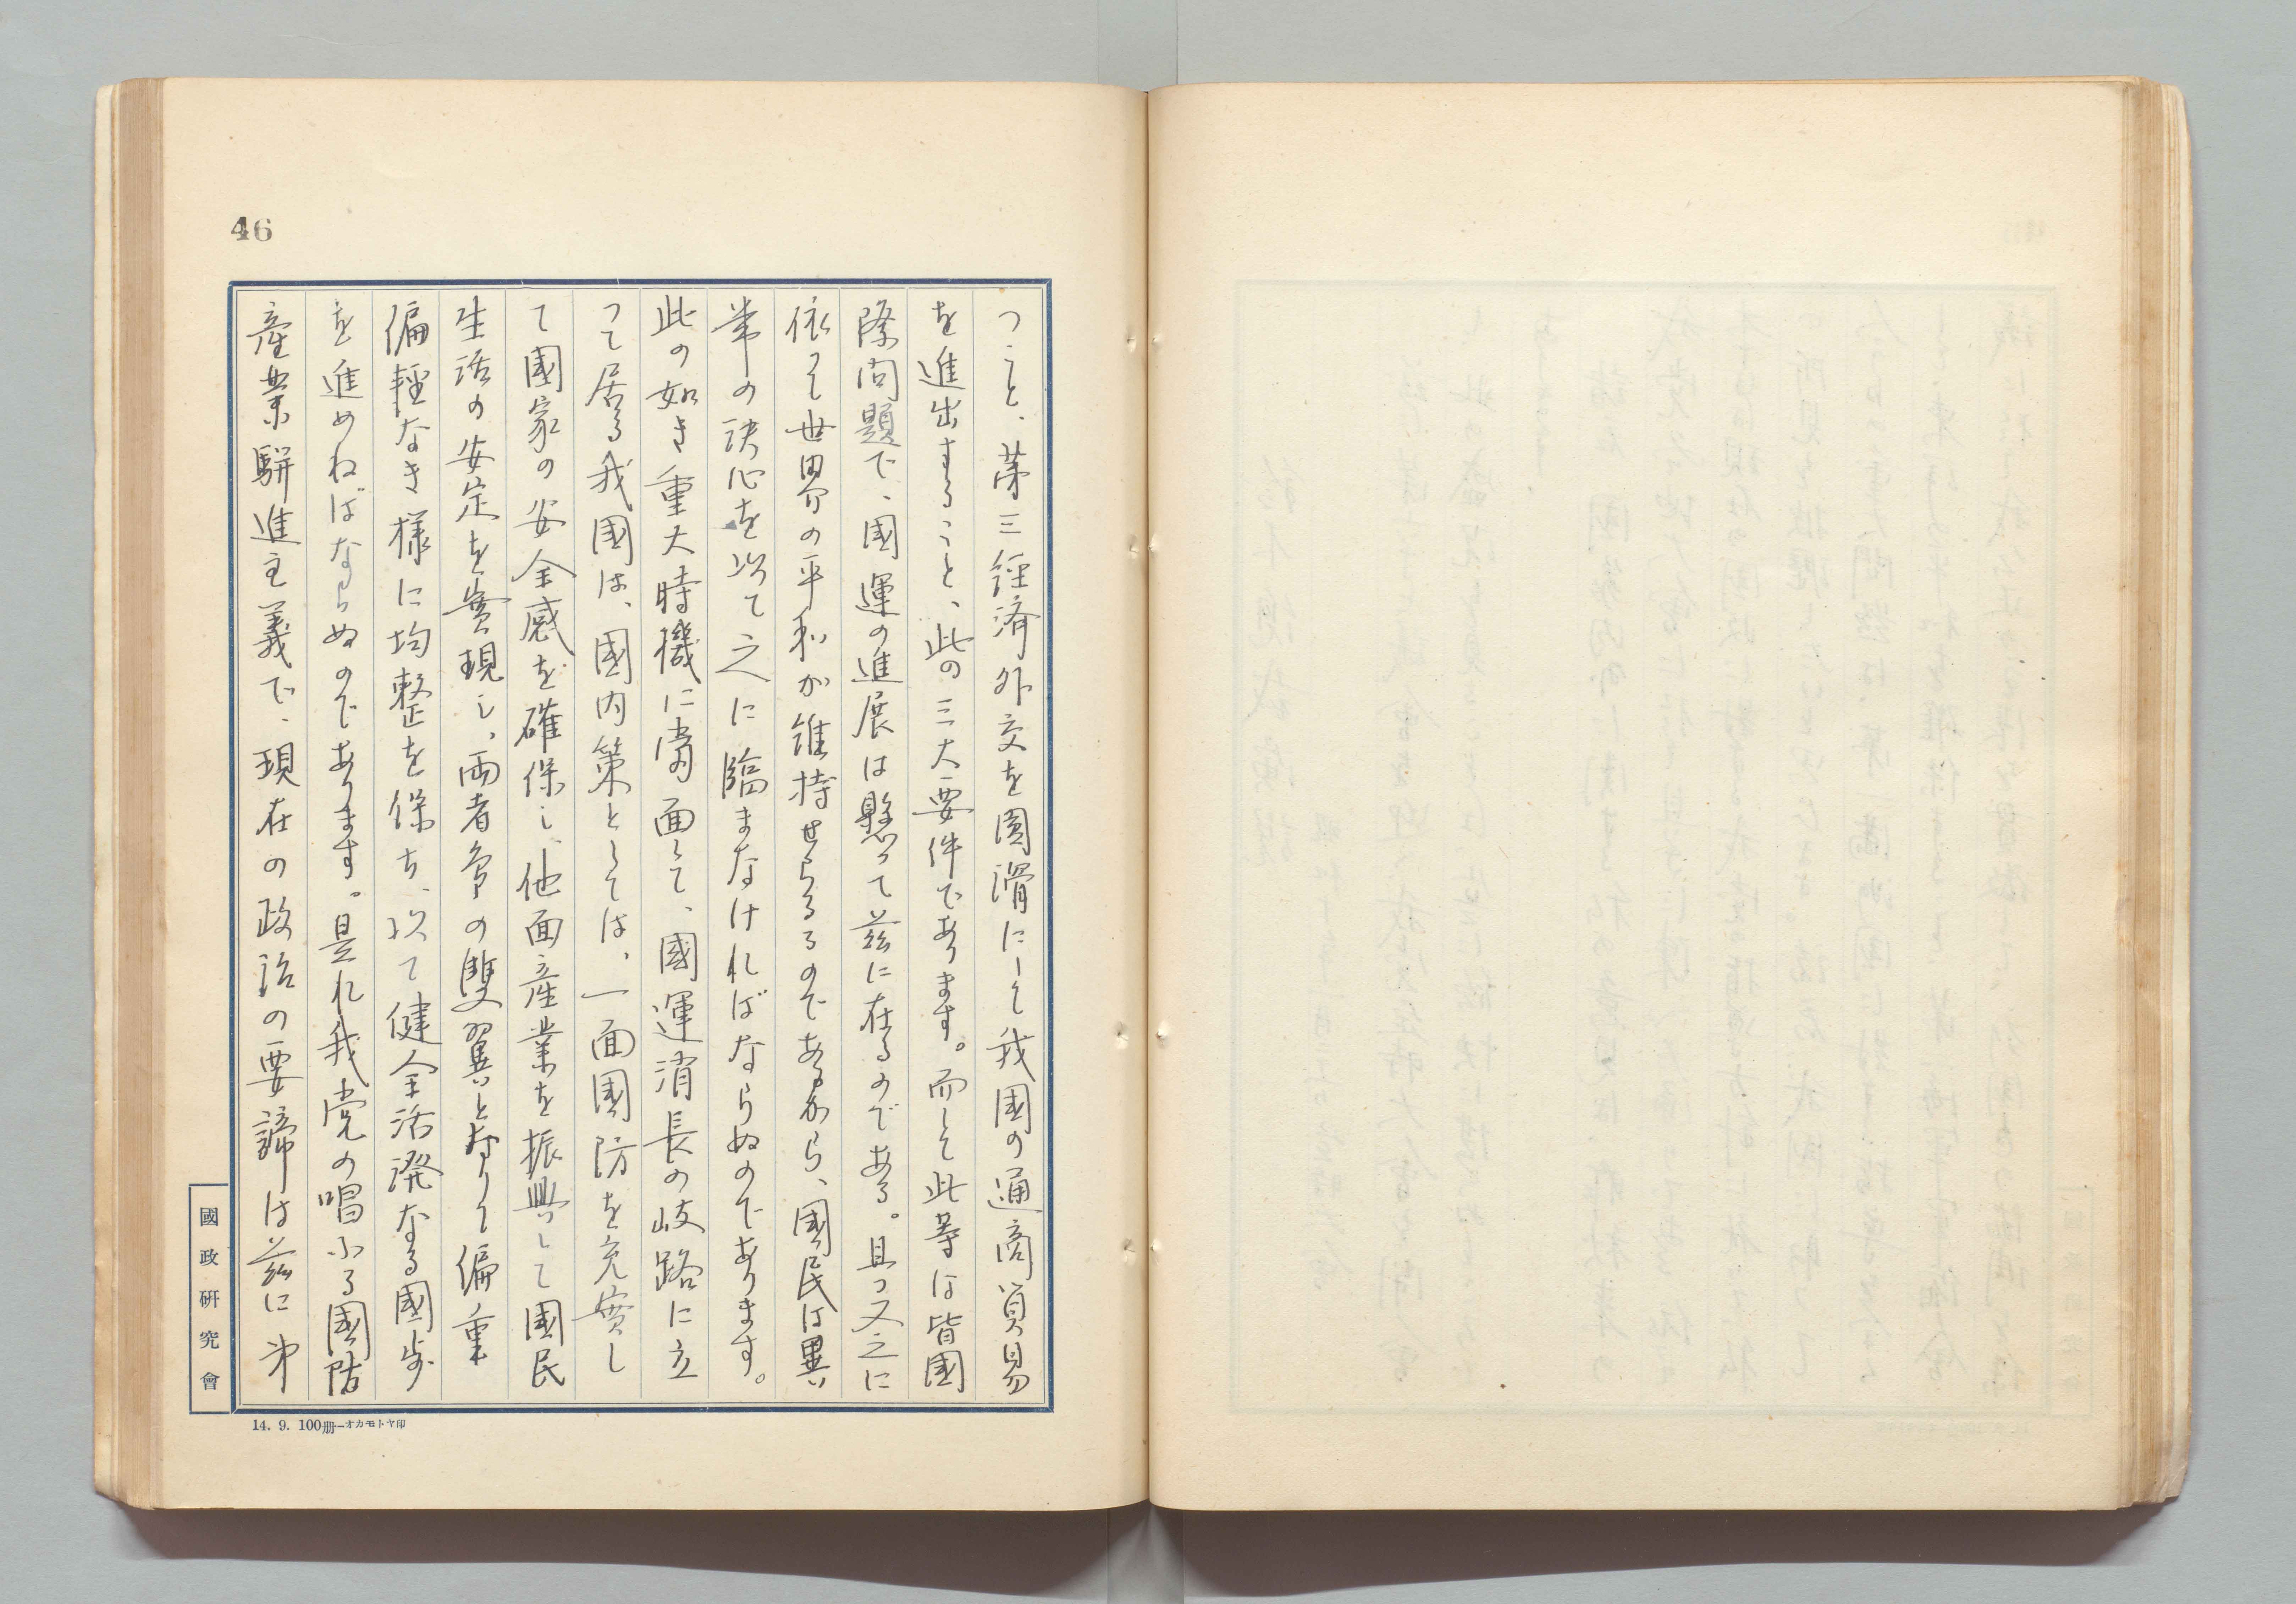 46
つこと、第三経済外交を圓滑にして我國の通商貿易
を進出すること、此の三大要件であります。而して此等は皆國
際問題で、國運の進展は懸って茲に在るのである。且つ又之に
依って世界の平和が維持せらるるのであるから、國民は異
常の決心を以て之に臨まなければならぬのであります。
此の如き重大時機に當面して、國運消長の岐路に立
って居る我國は、國内策としては、一面國防を充實し
て國家の安全感を確保し、他面産業を振興して國民
生活の安定を實現し、両者の雙翼となりて偏重
偏輕なき様に均整を保ち、以て健全活溌なる國歩
を進めねばならぬのであります。是れ我党の唱ふる國防
産業駢進主義で、現在の政治の要諦は茲に
國政研究會
14. 9. 100册―オカモトヤ印